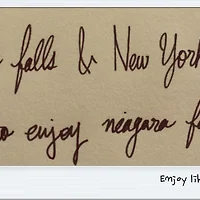 falls & New York
enjoy niagara
Enjoy